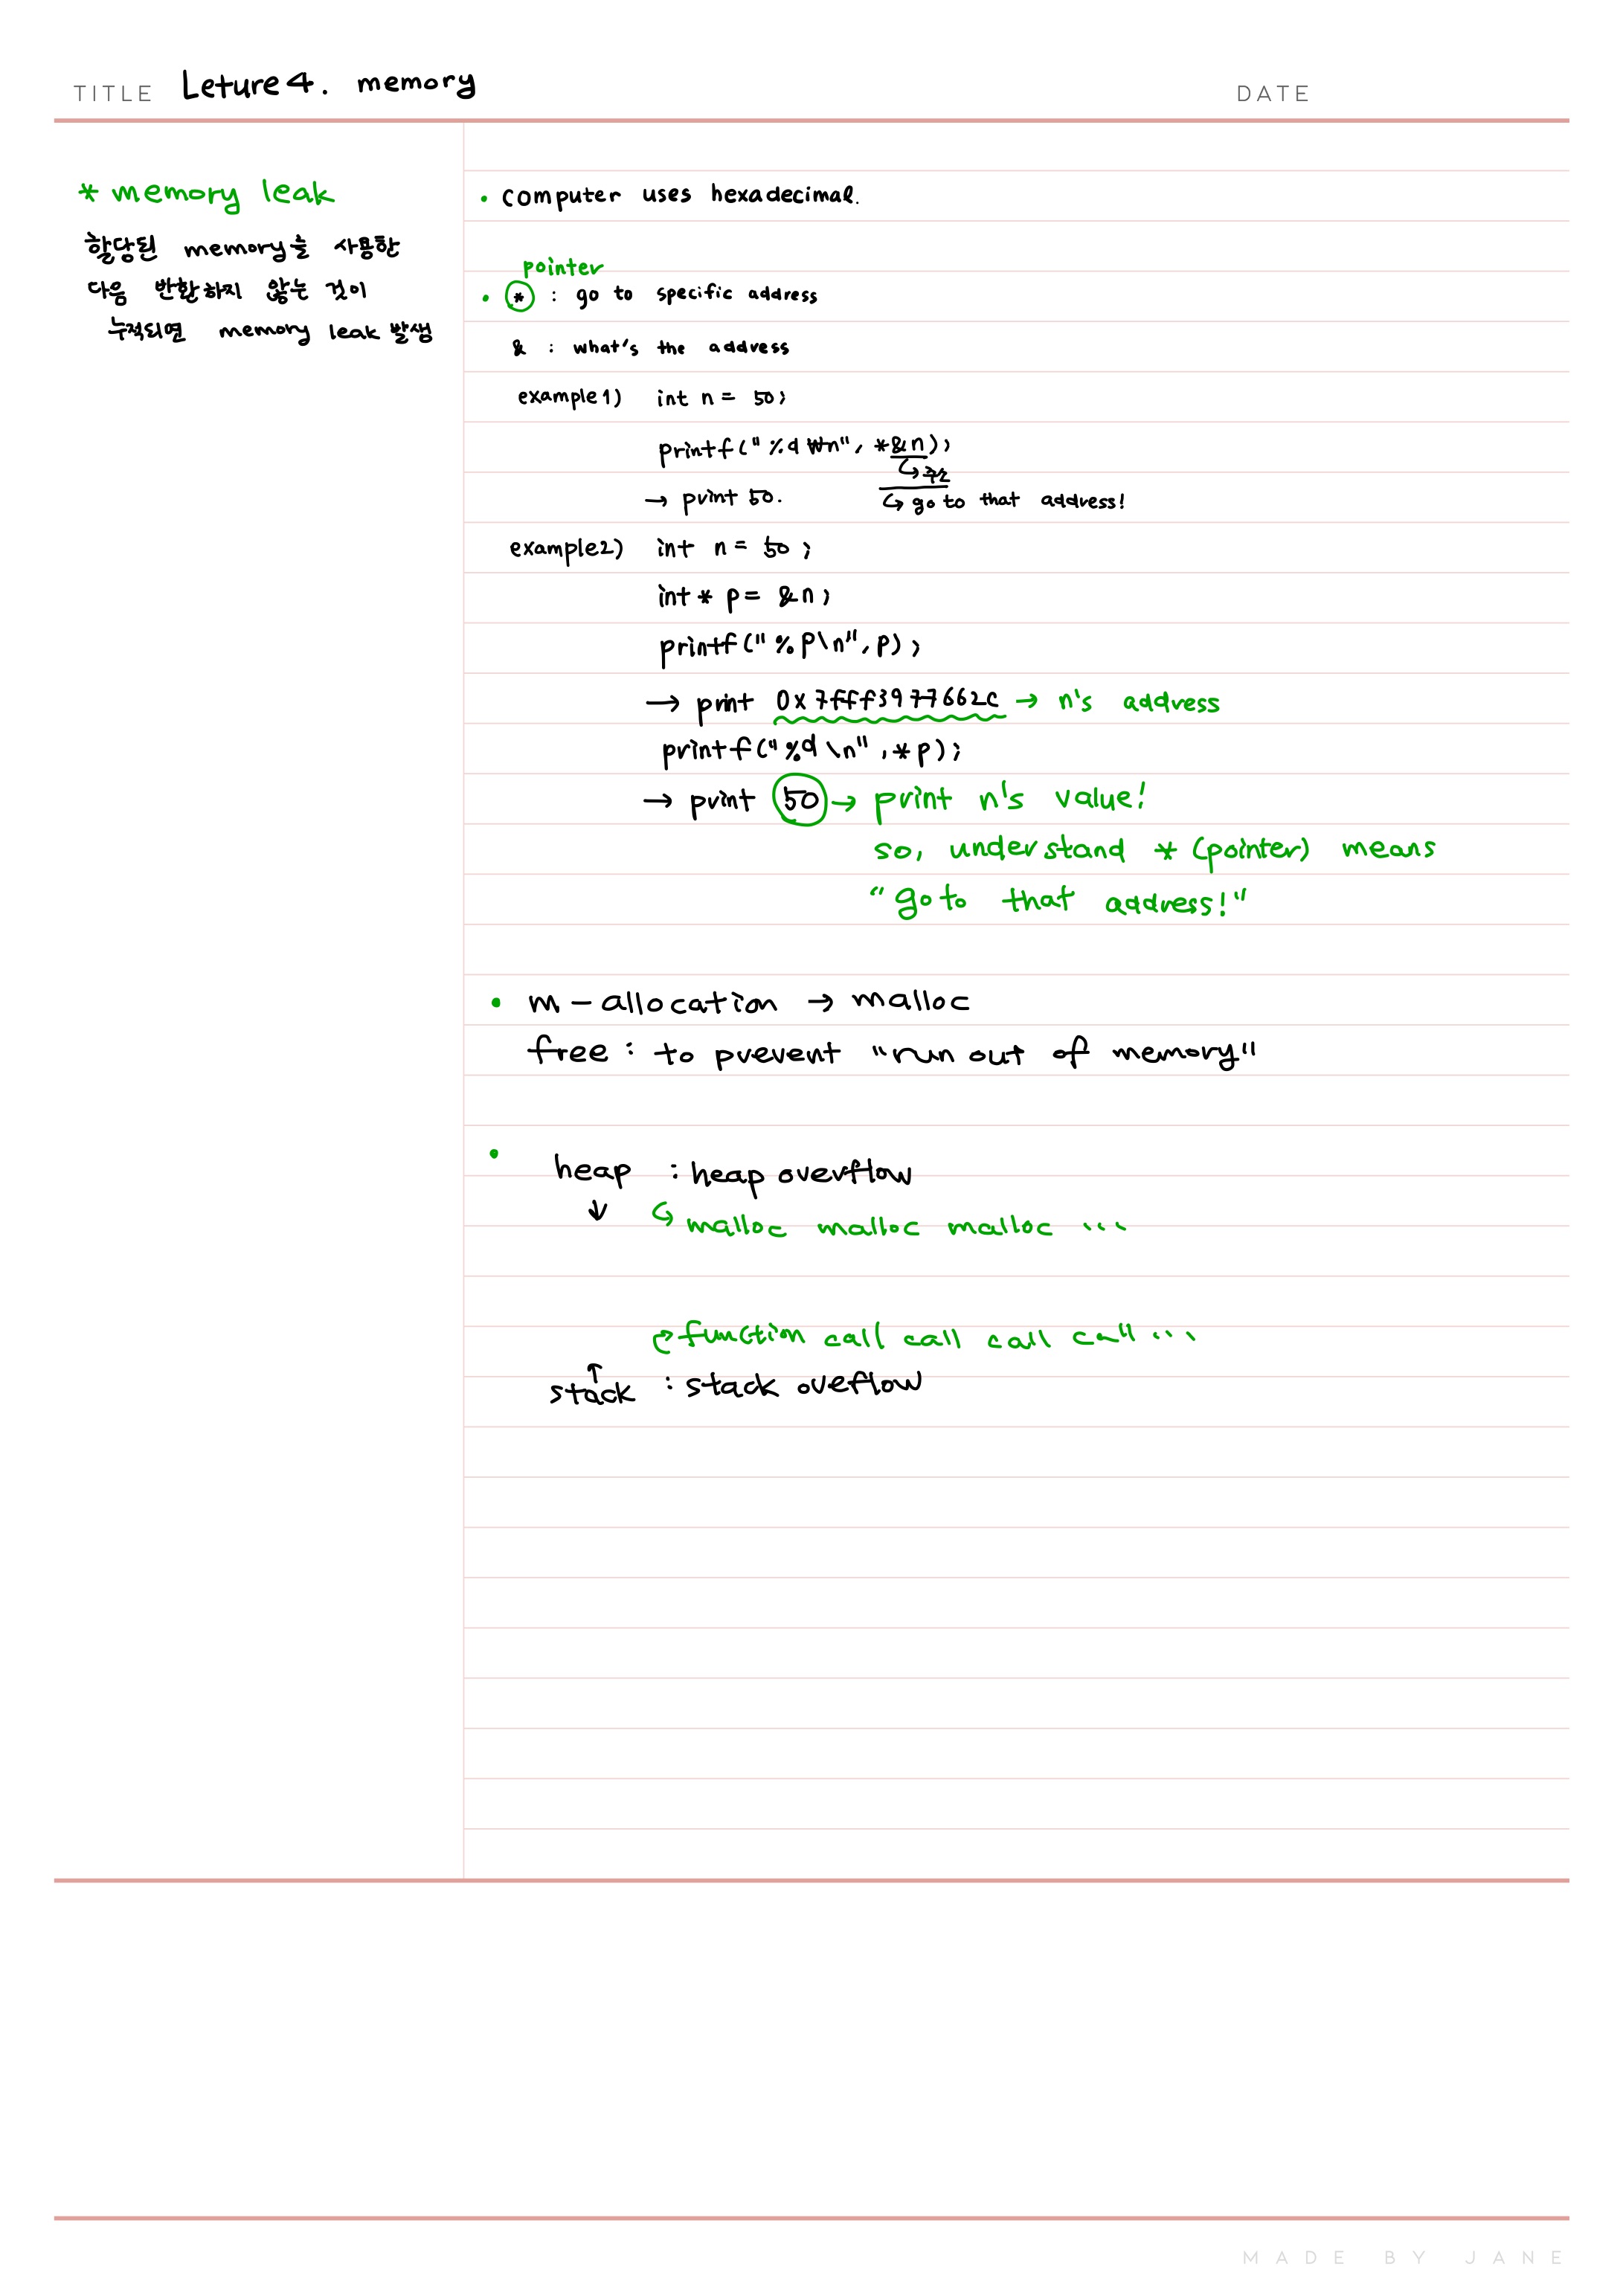 TITLE Leture 4. memory
DATE
* memory leak
할당된 memory를 사용한
다음 반환하지 않는 것이
누적되면 memory leak 발생
• computer uses hexadecimal.
pointer
• * : go to specific address
& : what's the address
example1) int n = 50;
printf("%d₩n", *&n);
↳ 주소
→ print 50. ↳ go to that address!
example2) int n = 50 ;
int * p = &n;
printf("%p\n", p) ;
→ print 0x7fff3977662c → n's address
printf("%d \n" , *p);
→ print 50 → print n's value!
so, understand * (pointer) means
"go to that address!"
• m-allocation → malloc
free : to prevent "run out of memory"
• heap : heap overflow
↓ ↳ malloc malloc malloc ...
function call call call call ...
↑
stack : stack oveflow
MADE BY JANE